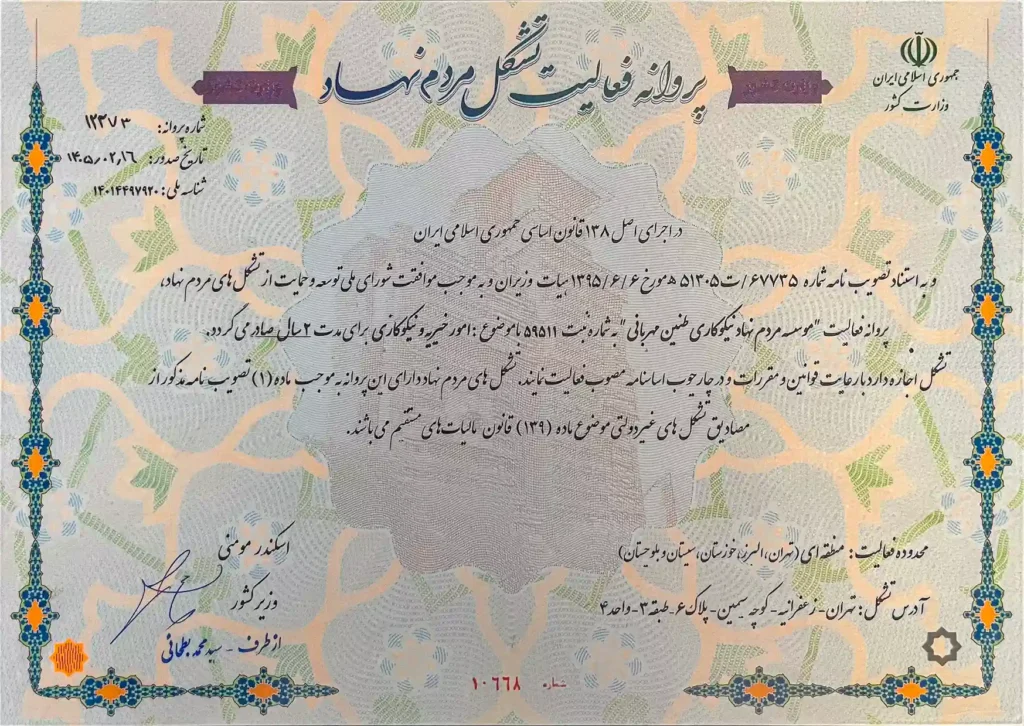 جمهوری اسلامی ایران
وزارت کشور
پروانه فعالیت تشکل مردم نهاد
شماره پروانه: ۱۲۲۷۳
تاریخ صدور: ۱۴۰۵٫۰۲٫۱۶
شناسه ملی: ۱۴۰۱۴۴۹۷۹۲۰
در اجرای اصل ۱۳۸ قانون اساسی جمهوری اسلامی ایران
و به استناد تصویب نامه شماره ۶۷۷۳۵/ت۵۱۳۰۵ه مورخ ۱۳۹۵/۶/۶ هیات وزیران و به موجب موافقت شورای ملی توسعه و حمایت از تشکل های مردم نهاد،
پروانه فعالیت "موسسه مردم نهاد نیکوکاری طنین مهربانی" به شماره ثبت ۵۹۵۱۱ با موضوع : امور خیریه و نیکوکاری برای مدت ۲ سال صادر می گردد.
تشکل اجازه دارد با رعایت قوانین و مقررات و در چارچوب اساسنامه مصوب فعالیت نمایند. تشکل های مردم نهاد دارای این پروانه به موجب ماده (۱) تصویب نامه مذکور از
مصادیق تشکل های غیردولتی موضوع ماده (۱۳۹) قانون مالیات های مستقیم می باشند.
محدوده فعالیت: منطقه ای (تهران، البرز، خوزستان، سیستان و بلوچستان)
آدرس تشکل : تهران- زعفرانیه- کوچه سیمین- پلاک ۶- طبقه ۳- واحد ۴
اسکندر مومنی
وزیر کشور
از طرف - سید محمد بطحائی
شماره ۱۰۶۶۸